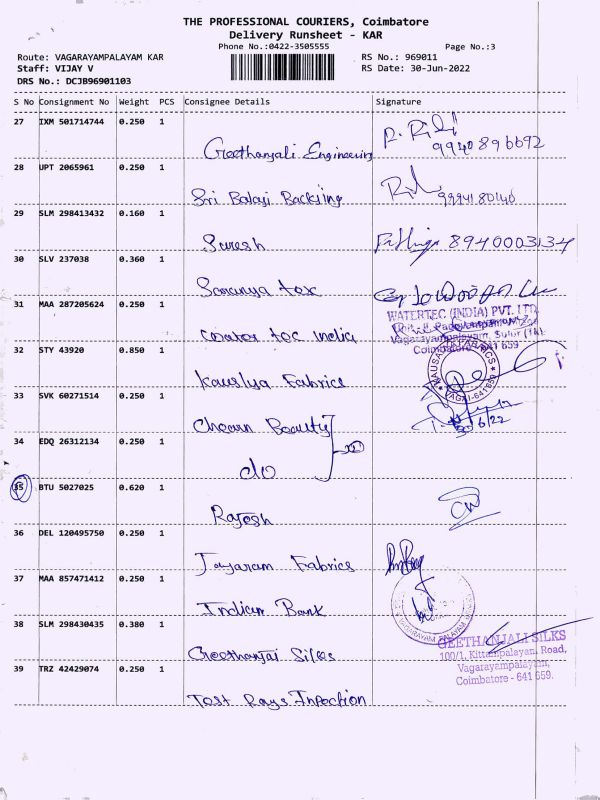 THE PROFESSIONAL COURIERS, Coimbatore
Delivery Runsheet - KAR
Phone No.:0422-3505555
Page No.:3
Route: VAGARAYAMPALAYAM KAR
RS No.: 969011
Staff: VIJAY V
RS Date: 30-Jun-2022
DRS No.: DCJB96901103
S No Consignment No Weight PCS Consignee Details Signature
27 IXM 501714744 0.250 1
Geethanjali Engineering
9940896692
28 UPT 2065961 0.250 1
Sri Balaji Backiing 9994180140
29 SLM 298413432 0.160 1
Suresh Fittings 8940003134
30 SLV 237038 0.360 1
Saranya tex
31 MAA 287205624 0.250 1
WATERTEC (INDIA) PVT. LTD
Vagarayampalayam, Sulur (Tk)
Coimbatore - 641 659
water tec india
32 STY 43920 0.850 1
Kauslya Fabrics
VAGAI-641 659
33 SVK 60271514 0.250 1
Cheran Beauty
30/6/22
34 EDQ 26312134 0.250 1
do
35 BTU 5027025 0.620 1
Rajesh
36 DEL 120495750 0.250 1
Jayaram Fabrics
37 MAA 857471412 0.250 1
Indian Bank
VAGARAYAM PALAYAM
38 SLM 298430435 0.380 1
Geethanjai Siles
GEETHANJALI SILKS
100/1, Kittampalayam Road,
Vagarayampalayam,
Coimbatore - 641 659.
39 TRZ 42429074 0.250 1
Test Rays Inpection